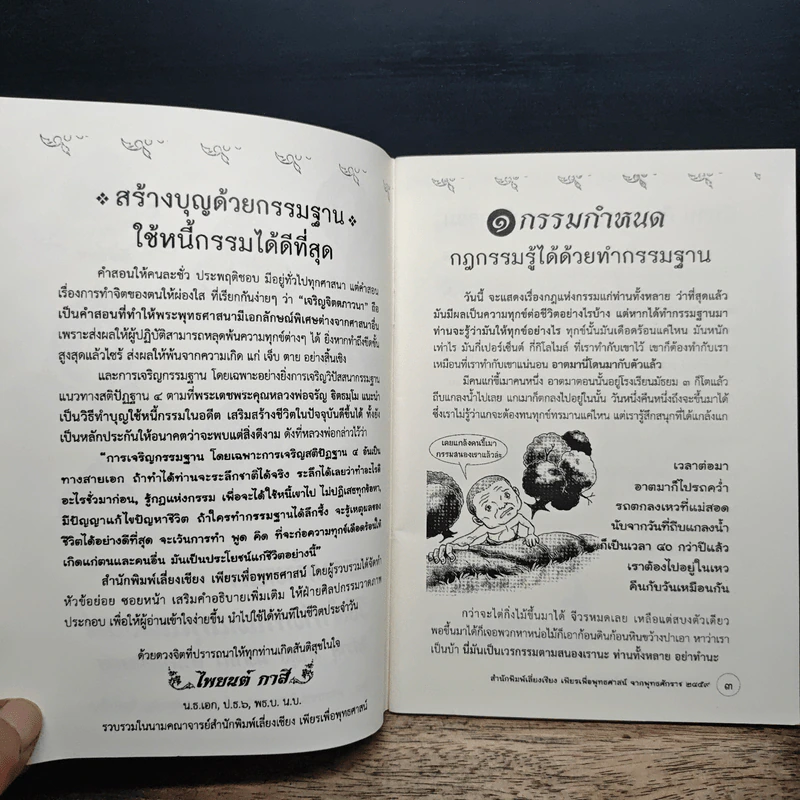 สร้างบุญด้วยกรรมฐาน
ใช้หนี้กรรมได้ดีที่สุด
คำสอนให้คนละชั่ว ประพฤติชอบ มีอยู่ทั่วไปทุกศาสนา แต่คำสอน
เรื่องการทำจิตของตนให้ผ่องใส ที่เรียกกันง่ายๆ ว่า “เจริญจิตตภาวนา” ถือ
เป็นคำสอนที่ทำให้พระพุทธศาสนามีเอกลักษณ์พิเศษต่างจากศาสนาอื่น
เพราะส่งผลให้ผู้ปฏิบัติสามารถหลุดพ้นความทุกข์ต่างๆ ได้ ยิ่งหากทำถึงขีดขั้น
สูงสุดแล้วไซร้ ส่งผลให้พ้นจากความเกิด แก่ เจ็บ ตาย อย่างสิ้นเชิง
และการเจริญกรรมฐาน โดยเฉพาะอย่างยิ่งการเจริญวิปัสสนากรรมฐาน
แนวทางสติปัฏฐาน ๔ ตามที่พระเดชพระคุณหลวงพ่อจรัญ ฐิตธมฺโม แนะนำ
เป็นวิธีทำบุญใช้หนี้กรรมในอดีต เสริมสร้างชีวิตในปัจจุบันดีขึ้นได้ ทั้งยัง
เป็นหลักประกันให้อนาคตว่าจะพบแต่สิ่งดีงาม ดังที่หลวงพ่อกล่าวไว้ว่า
“การเจริญกรรมฐาน โดยเฉพาะการเจริญสติปัฏฐาน ๔ อันเป็น
ทางสายเอก ถ้าทำได้ท่านจะระลึกชาติได้จริง ระลึกได้เลยว่าทำอะไรดี
อะไรชั่วมาก่อน, รู้กฎแห่งกรรม เพื่อจะได้ใช้หนี้เขาไป ไม่ปฏิเสธทุกข้อหา,
มีปัญญาแก้ไขปัญหาชีวิต ถ้าใครทำกรรมฐานได้ลึกซึ้ง จะรู้เหตุผลของ
ชีวิตได้อย่างดีที่สุด จะเว้นการทำ พูด คิด ที่จะก่อความทุกข์เดือดร้อนให้
เกิดแก่ตนและคนอื่น มันเป็นประโยชน์แก่ชีวิตอย่างนี้”
สำนักพิมพ์เลี่ยงเชียง เพียรเพื่อพุทธศาสน์ โดยผู้รวบรวมได้จัดทำ
หัวข้อย่อย ซอยหน้า เสริมคำอธิบายเพิ่มเติม ให้ฝ่ายศิลปกรรมวาดภาพ
ประกอบ เพื่อให้ผู้อ่านเข้าใจง่ายขึ้น นำไปใช้ได้ทันทีในชีวิตประจำวัน
ด้วยดวงจิตที่ปรารถนาให้ทุกท่านเกิดสันติสุขในใจ
ไพยนต์ กาสี
น.ธ.เอก, ป.ธ.๖, พธ.บ. น.บ.
รวบรวมในนามคณาจารย์สำนักพิมพ์เลี่ยงเชียง เพียรเพื่อพุทธศาสน์
๑ กรรมกำหนด
กฎกรรมรู้ได้ด้วยทำกรรมฐาน
วันนี้ จะแสดงเรื่องกฎแห่งกรรมแก่ท่านทั้งหลาย ว่าที่สุดแล้ว
มันมีผลเป็นความทุกข์ต่อชีวิตอย่างไรบ้าง แต่หากได้ทำกรรมฐานมา
ท่านจะรู้ว่ามันให้ทุกข์อย่างไร ทุกข์นั้นมันเดือดร้อนแค่ไหน มันหนัก
เท่าไร มันกี่เปอร์เซ็นต์ กี่กิโลไมล์ ที่เราทำกับเขาไว้ เขาก็ต้องทำกับเรา
เหมือนที่เราทำกับเขาแน่นอน อาตมานี่โดนมากับตัวแล้ว
มีคนแก่ขี้เมาคนหนึ่ง อาตมาตอนนั้นอยู่โรงเรียนมัธยม ๓ ก็โตแล้ว
ถีบแกลงน้ำไปเลย แกเมาก็ตกลงไปอยู่ในนั้น วันหนึ่งคืนหนึ่งถึงจะขึ้นมาได้
ซึ่งเราไม่รู้ว่าแกจะต้องทนทุกข์ทรมานแค่ไหน แต่เรารู้สึกสนุกที่ได้แกล้งแก
เคยแกล้งคนขี้เมา
กรรมสนองเราแล้วล่ะ
เวลาต่อมา
อาตมาก็ไปรถคว่ำ
รถตกลงเหวที่แม่สอด
นับจากวันที่ถีบแกลงน้ำ
ก็เป็นเวลา ๔๐ กว่าปีแล้ว
เราต้องไปอยู่ในเหว
คืนกับวันเหมือนกัน
กว่าจะไต่กิ่งไม้ขึ้นมาได้ จีวรหมดเลย เหลือแต่สบงตัวเดียว
พอขึ้นมาได้ก็เจอพวกหาหน่อไม้ก็เอาก้อนดินก้อนหินขว้างปาเอา หาว่าเรา
เป็นบ้า นี่มันเป็นเวรกรรมตามสนองเรานะ ท่านทั้งหลาย อย่าทำนะ
สำนักพิมพ์เลี่ยงเชียง เพียรเพื่อพุทธศาสน์ จากพุทธศักราช ๒๔๕๙ ๓